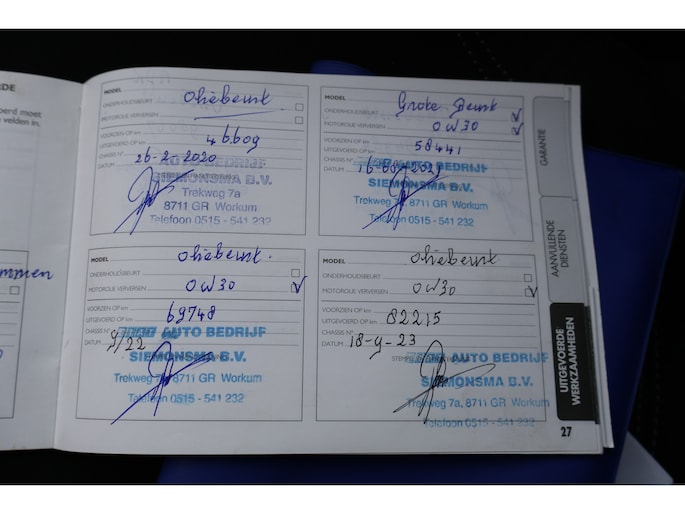 RDE
oerd moet
velden in,
mmen
MODEL Oliebeurt
ONDERHOUDSBEURT
MOTOROLIE VERVERSEN
VOORZIEN OP km
UITGEVOERD OP km 46609
CHASSIS N°
DATUM 26-2-2020
AUTO BEDRIJF
SIEMONSMA B.V.
Trekweg 7a
8711 GR Workum
Telefoon 0515 - 541 232
MODEL Grote Beurt
ONDERHOUDSBEURT
MOTOROLIE VERVERSEN 0W30
VOORZIEN OP km
UITGEVOERD OP km 58441
CHASSIS N°
DATUM
AUTO BEDRIJF
SIEMONSMA B.V.
Trekweg 7a, 8711 GR Workum
Telefoon 0515 - 541 232
MODEL Oliebeurt.
ONDERHOUDSBEURT
MOTOROLIE VERVERSEN 0W30
VOORZIEN OP km
UITGEVOERD OP km 69748
CHASSIS N°
DATUM /22
AUTO BEDRIJF
SIEMONSMA B.V.
Trekweg 7a, 8711 GR Workum
Telefoon 0515 - 541 232
MODEL Oliebeurt
ONDERHOUDSBEURT
MOTOROLIE VERVERSEN 0W30
VOORZIEN OP km
UITGEVOERD OP km 82215
CHASSIS N°
DATUM 18-9-23
AUTO BEDRIJF
SIEMONSMA B.V.
Trekweg 7a, 8711 GR Workum
Telefoon 0515 - 541 232
GARANTIE
AANVULLENDE
DIENSTEN
UITGEVOERDE
WERKZAAMHEDEN
27